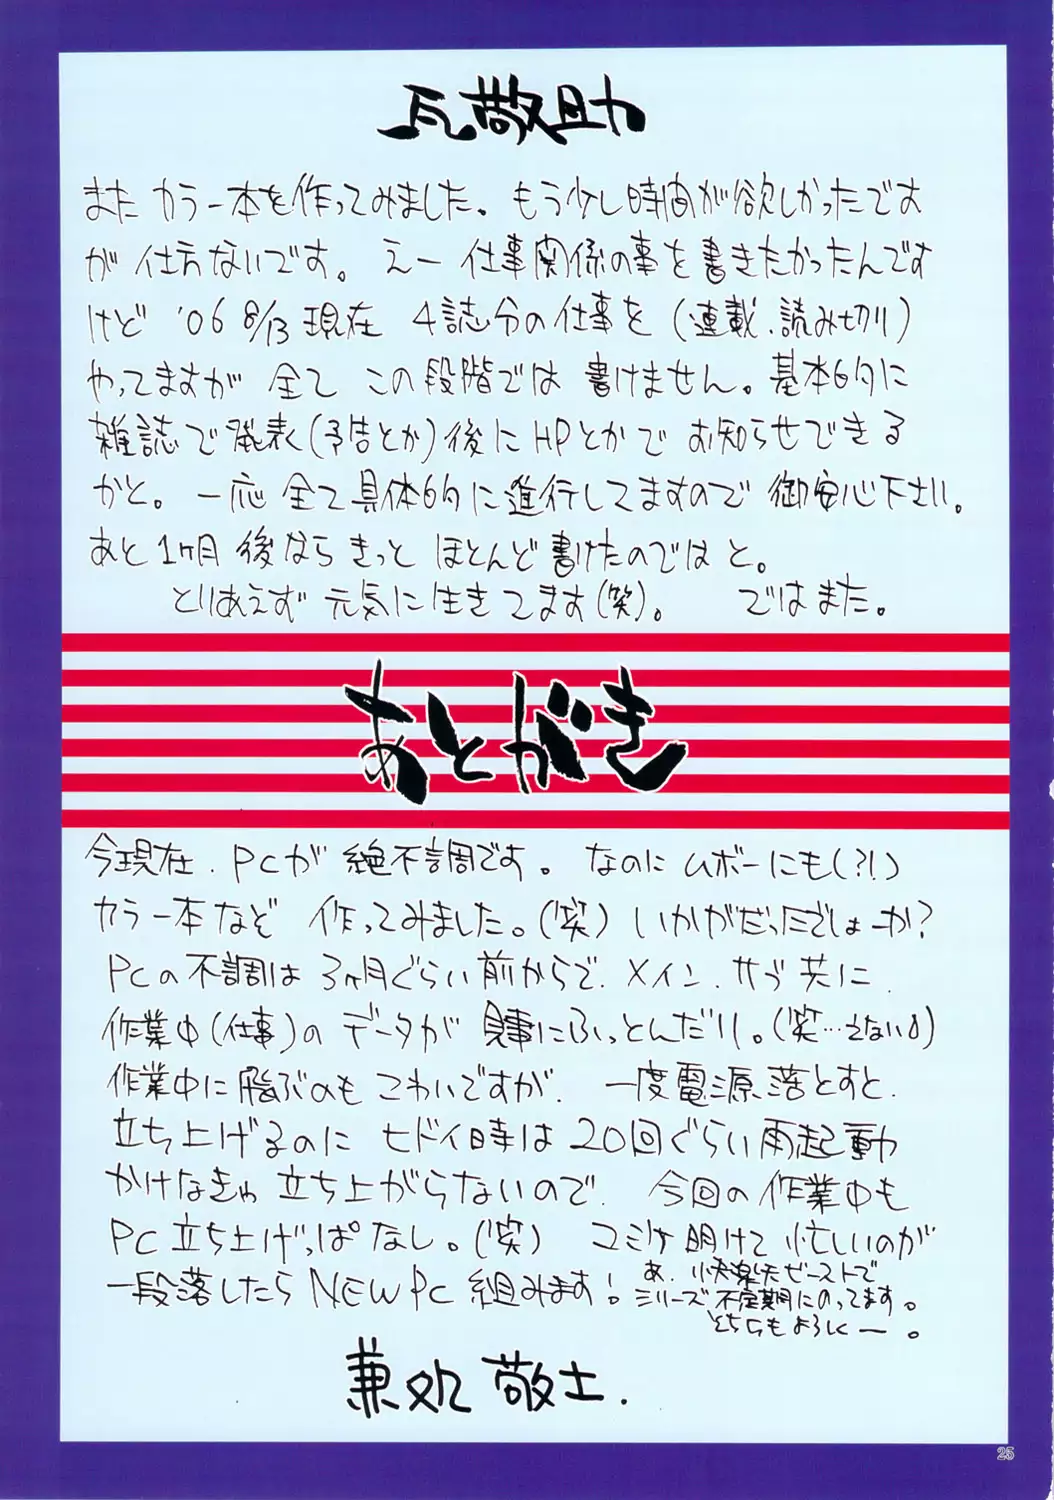 瓦敬助
また カラー本を作ってみました。もう少し時間が欲しかったです
が仕方ないです。えー 仕事関係の事を書きたかったんです
けど '06 8/13 現在 4誌分の仕事を(連載、読み切り)
やってますが 全て この段階では 書けません。基本的に
雑誌で発表(予告とか)後にHPとかで お知らせできる
かと。一応 全て具体的に進行してますので 御安心下さい。
あと1ヶ月後なら きっと ほとんど書けたのでは と。
とりあえず 元気に生きてます(笑)。 ではまた。
あとがき
今現在、PCが 絶不調です。なのに ムボーにも(?!)
カラー本など 作ってみました。(笑) いかがだったでしょーか?
PCの不調は3ヶ月ぐらい前からで、メイン、サブ共に、
作業中(仕事)の データが 見事にふっとんだり。(笑…えない〻)
作業中に飛ぶのも こわいですが、一度電源落とすと、
立ち上げるのに ヒドイ時は 20回ぐらい再起動
かけなきゃ 立ち上がらないので、今回の作業中も
PC立ち上げっぱなし。(笑) コミケ明けて 忙しいのが
一段落したら NEW PC 組みます!
あ、快楽天ビーストで
シリーズ 不定期にのってます。
そちらもよろしくー。
兼処 敬士.
25